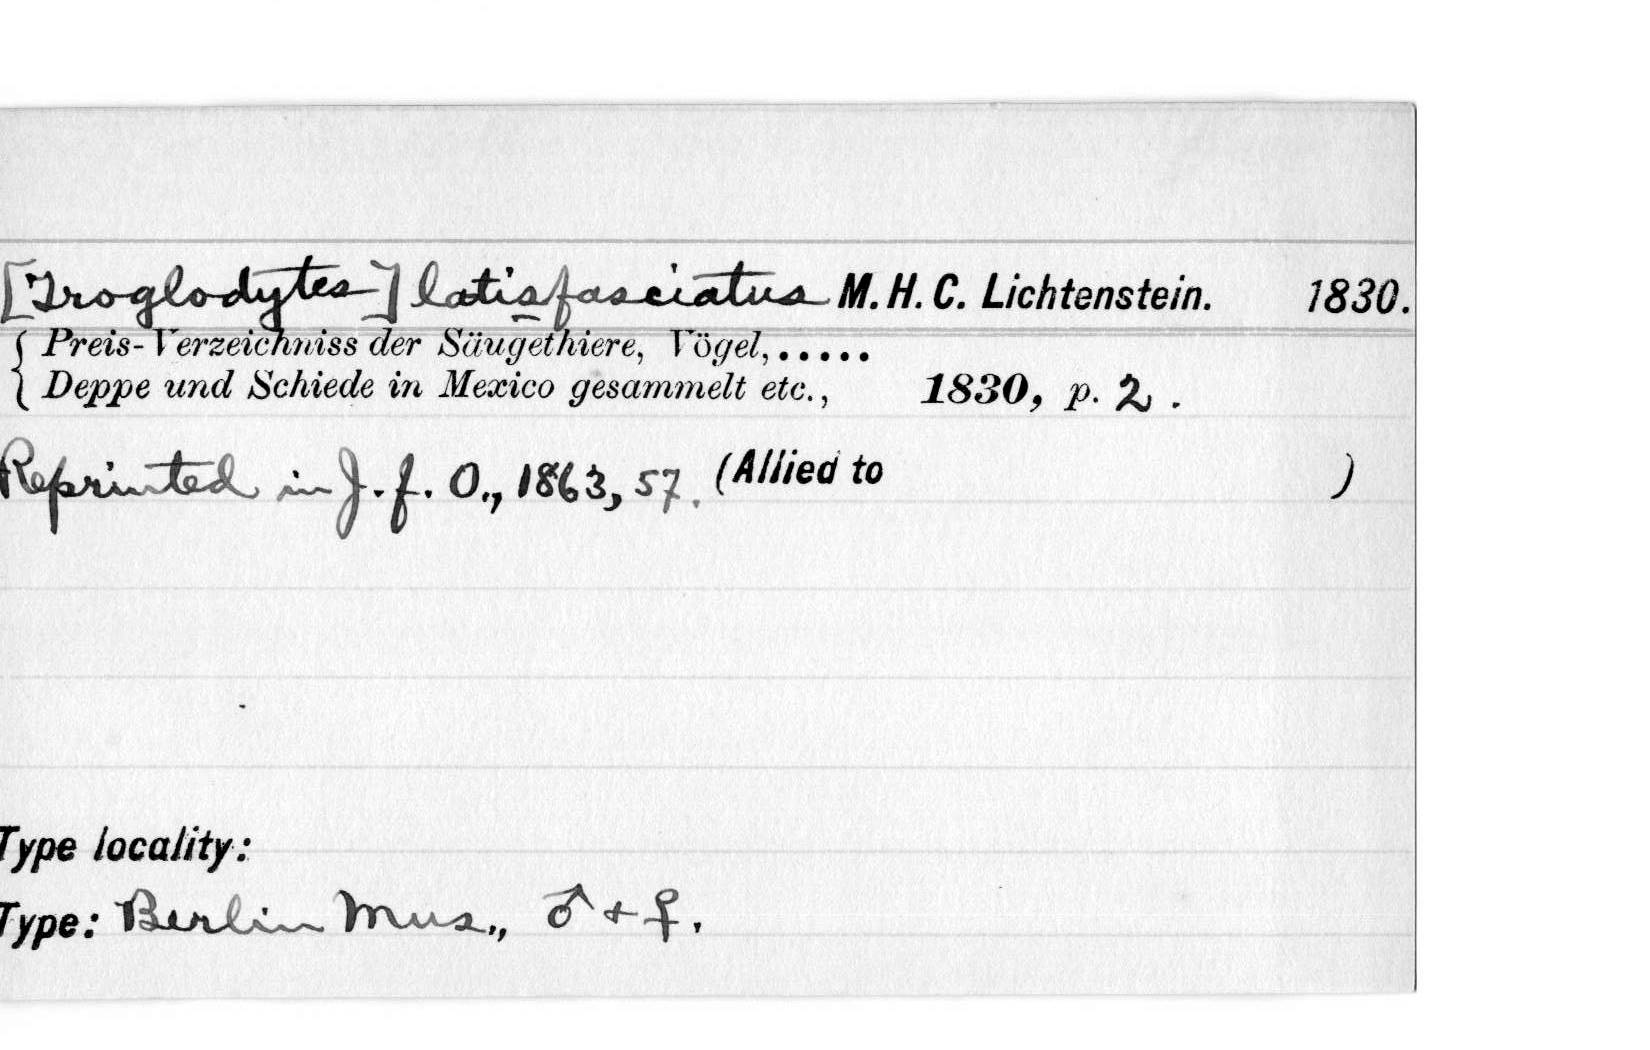 [Troglodytes] latisfasciatus M. H. C. Lichtenstein. 1830.
{ Preis-Verzeichniss der Säugethiere, Vögel, .....
Deppe und Schiede in Mexico gesammelt etc., 1830, p. 2.
Reprinted in J. f. O., 1863, 57. (Allied to )
Type locality:
Type: Berlin Mus., ♂ + ♀.